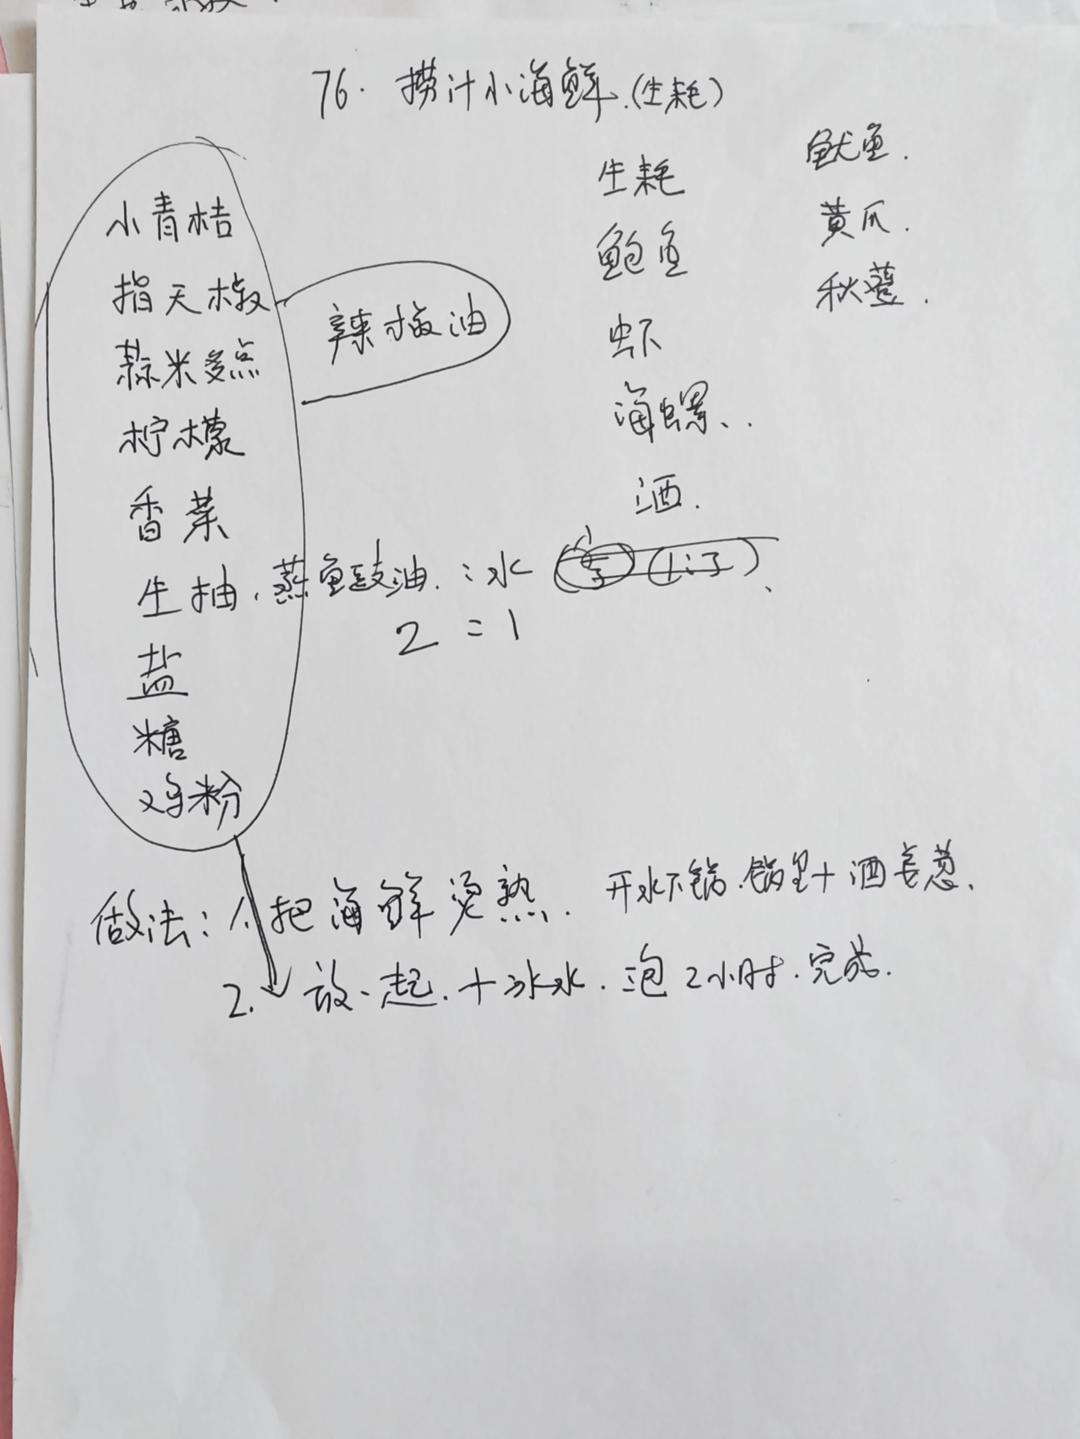 76. 捞汁小海鲜.(生耗)
小青桔
指天椒
蒜米多点
柠檬
香菜
生抽.蒸鱼豉油.:水
2=1
盐
糖
鸡粉
辣椒油
生耗
鲍鱼
虾
海螺..
酒.
鱿鱼.
黄瓜.
秋葵.
做法:1.把海鲜烫熟. 开水下锅.锅里+酒姜葱.
2. 放一起.+冰水.泡2小时.完成.